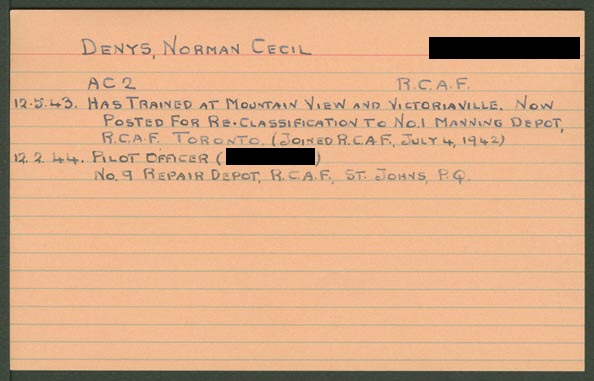 DENYS, NORMAN CECIL
AC2 R.C.A.F.
12.5.43. HAS TRAINED AT MOUNTAIN VIEW AND VICTORIAVILLE. NOW
POSTED FOR RE-CLASSIFICATION TO NO.1 MANNING DEPOT,
R.C.A.F. TORONTO. (JOINED R.C.A.F., JULY 4, 1942)
12.2.44. PILOT OFFICER ( )
NO. 9 REPAIR DEPOT, R.C.A.F., ST. JOHNS, P.Q.